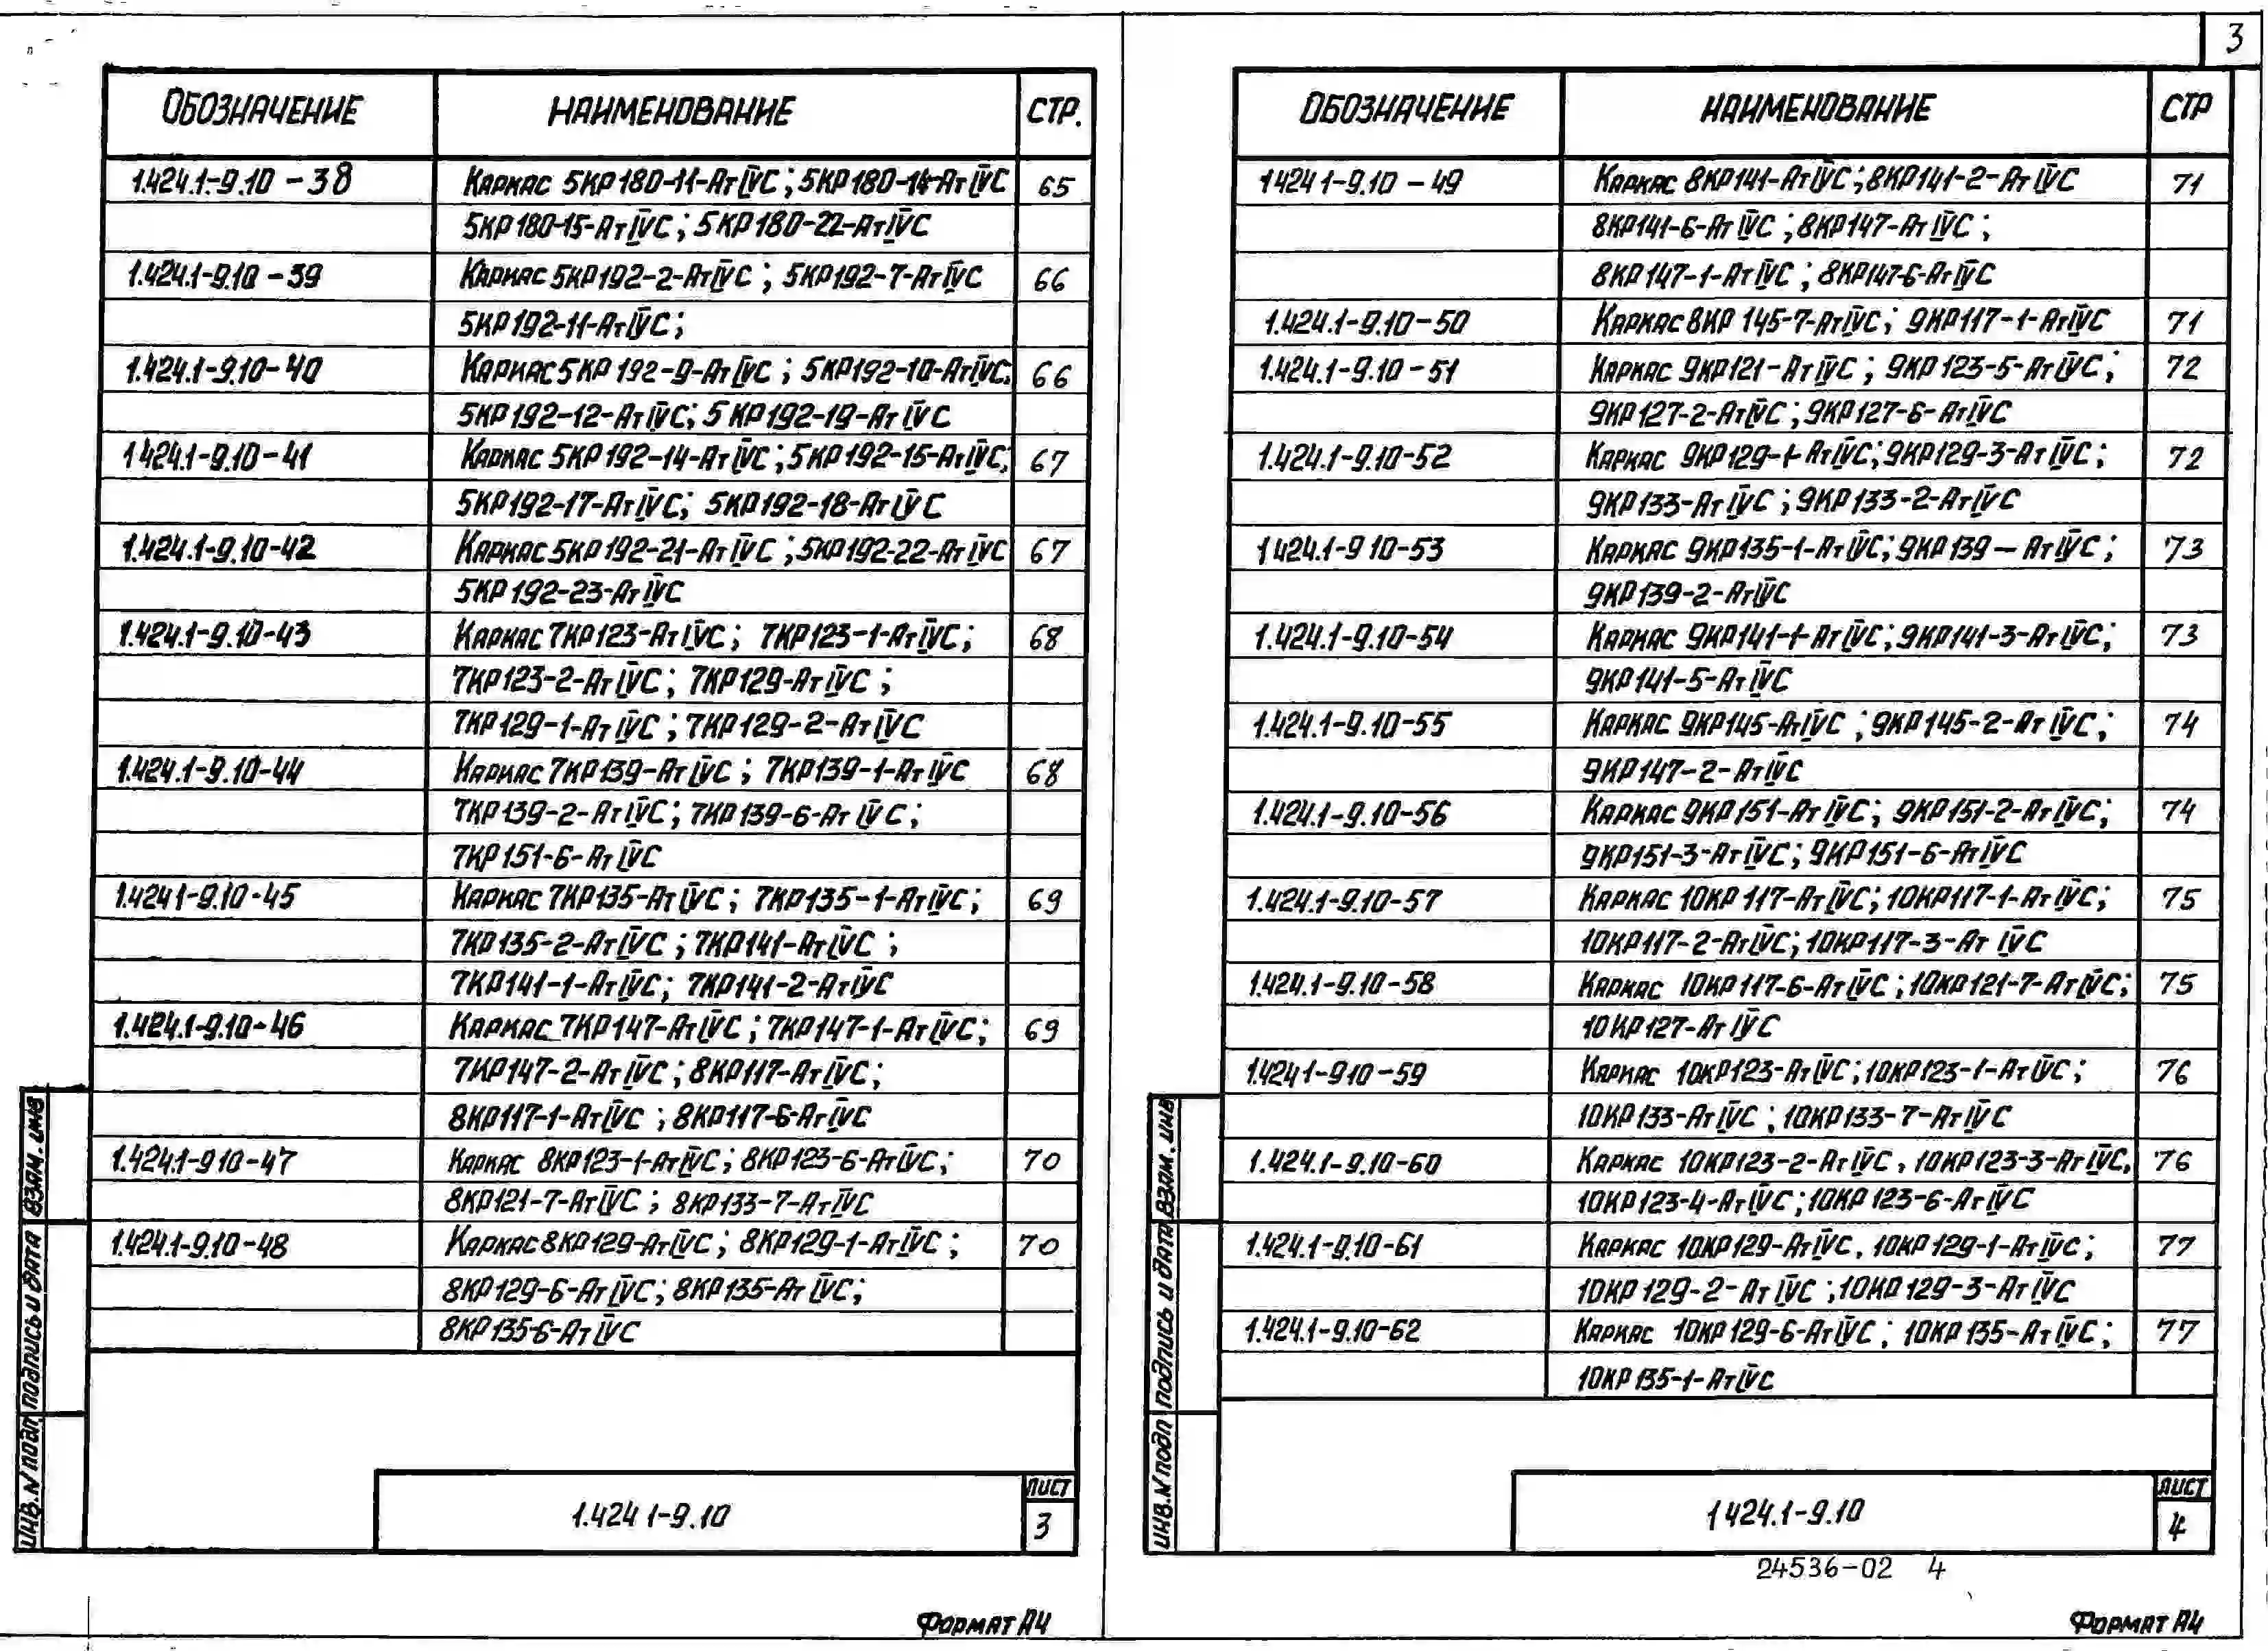 3
ОБОЗНАЧЕНИЕ НАИМЕНОВАНИЕ СТР.
1.424.1-9.10-38 Каркас 5КР180-11-АтIVС; 5КР180-14-АтIVС 65
5КР180-15-АтIVС; 5КР180-22-АтIVС
1.424.1-9.10-39 Каркас 5КР192-2-АтIVС; 5КР192-7-АтIVС 66
5КР192-11-АтIVС;
1.424.1-9.10-40 Каркас 5КР192-9-АтIVС; 5КР192-10-АтIVС; 66
5КР192-12-АтIVС; 5КР192-19-АтIVС
1.424.1-9.10-41 Каркас 5КР192-14-АтIVС; 5КР192-15-АтIVС; 67
5КР192-17-АтIVС; 5КР192-18-АтIVС
1.424.1-9.10-42 Каркас 5КР192-21-АтIVС; 5КР192-22-АтIVС 67
5КР192-23-АтIVС
1.424.1-9.10-43 Каркас 7КР123-АтIVС; 7КР123-1-АтIVС; 68
7КР123-2-АтIVС; 7КР129-АтIVС;
7КР129-1-АтIVС; 7КР129-2-АтIVС
1.424.1-9.10-44 Каркас 7КР139-АтIVС; 7КР139-1-АтIVС 68
7КР139-2-АтIVС; 7КР139-6-АтIVС;
7КР151-6-АтIVС
1.424.1-9.10-45 Каркас 7КР135-АтIVС; 7КР135-1-АтIVС; 69
7КР135-2-АтIVС; 7КР141-АтIVС;
7КР141-1-АтIVС; 7КР141-2-АтIVС
1.424.1-9.10-46 Каркас 7КР147-АтIVС; 7КР147-1-АтIVС; 69
7КР147-2-АтIVС; 8КР117-АтIVС;
8КР117-1-АтIVС; 8КР117-6-АтIVС
1.424.1-9 10-47 Каркас 8КР123-1-АтIVС; 8КР123-6-АтIVС; 70
8КР121-7-АтIVС; 8КР133-7-АтIVС
1.424.1-9.10-48 Каркас 8КР129-АтIVС; 8КР129-1-АтIVС; 70
8КР129-6-АтIVС; 8КР135-АтIVС;
8КР135-6-АтIVС
ВЗАМ. ИНВ
ПОДПИСЬ И ДАТА
ИНВ. N ПОДЛ
1.424 1-9.10
ЛИСТ
3
ФОРМАТ А4
ОБОЗНАЧЕНИЕ НАИМЕНОВАНИЕ СТР
1 424 1-9.10-49 Каркас 8КР141-АтIVС; 8КР141-2-АтIVС 71
8КР141-6-АтIVС; 8КР147-АтIVС;
8КР147-1-АтIVС; 8КР147-6-АтIVС
1.424.1-9.10-50 Каркас 8КР145-7-АтIVС; 9КР117-1-АтIVС 71
1.424.1-9.10-51 Каркас 9КР121-АтIVС; 9КР123-5-АтIVС; 72
9КР127-2-АтIVС; 9КР127-6-АтIVС
1.424.1-9.10-52 Каркас 9КР129-1-АтIVС; 9КР129-3-АтIVС; 72
9КР133-АтIVС; 9КР133-2-АтIVС
1 424.1-9 10-53 Каркас 9КР135-1-АтIVС; 9КР139-АтIVС; 73
9КР139-2-АтIVС
1.424.1-9.10-54 Каркас 9КР141-1-АтIVС; 9КР141-3-АтIVС; 73
9КР141-5-АтIVС
1.424.1-9.10-55 Каркас 9КР145-АтIVС; 9КР145-2-АтIVС; 74
9КР147-2-АтIVС
1.424.1-9.10-56 Каркас 9КР151-АтIVС; 9КР151-2-АтIVС; 74
9КР151-3-АтIVС; 9КР151-6-АтIVС
1.424.1-9.10-57 Каркас 10КР117-АтIVС; 10КР117-1-АтIVС; 75
10КР117-2-АтIVС; 10КР117-3-АтIVС
1.424.1-9.10-58 Каркас 10КР117-6-АтIVС; 10КР121-7-АтIVС; 75
10КР127-АтIVС
1.424 1-9 10-59 Каркас 10КР123-АтIVС; 10КР123-1-АтIVС; 76
10КР133-АтIVС; 10КР133-7-АтIVС
1.424.1-9.10-60 Каркас 10КР123-2-АтIVС, 10КР123-3-АтIVС, 76
10КР123-4-АтIVС; 10КР123-6-АтIVС
1.424.1-9.10-61 Каркас 10КР129-АтIVС, 10КР129-1-АтIVС; 77
10КР129-2-АтIVС; 10КР129-3-АтIVС
1.424.1-9.10-62 Каркас 10КР129-6-АтIVС; 10КР135-АтIVС; 77
10КР135-1-АтIVС
ВЗАМ. ИНВ
ПОДПИСЬ И ДАТА
ИНВ. N ПОДЛ
1 424.1-9.10
ЛИСТ
4
24536-02 4
ФОРМАТ А4